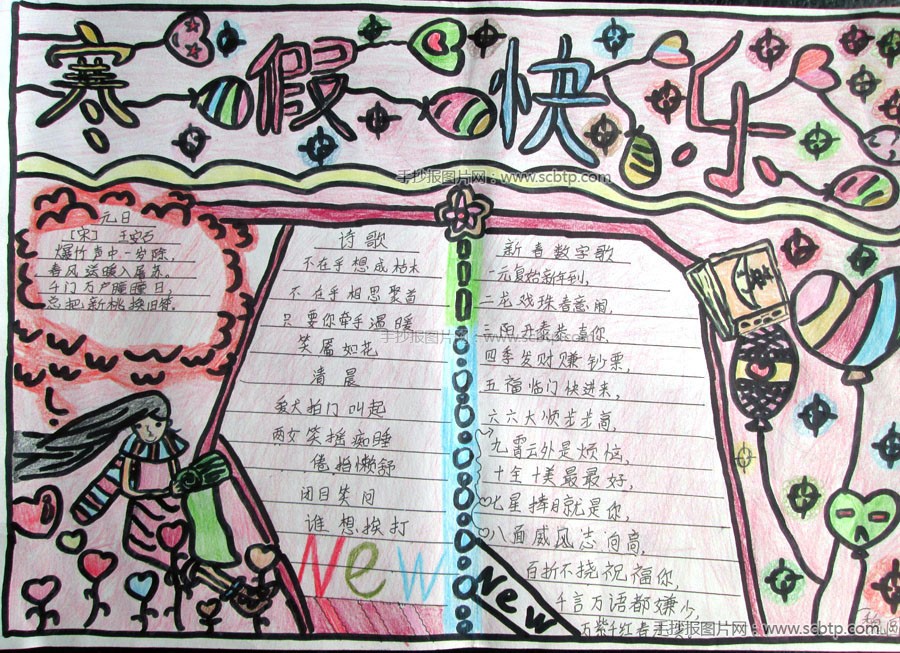 寒假快乐
手抄报图片网:www.scbtp.com
元日
[宋] 王安石
爆竹声中一岁除
春风送暖入屠苏。
千门万户瞳瞳日,
总把新桃换旧符。
诗歌
不在乎想成枯木
不在乎相思聚首
只要你牵手温暖
手抄报图片网:www.scbtp.com
笑靥如花
清晨
爱犬拍门叫起
两女笑摇痴睡
倦抬懒舒
闭目笑问
谁想挨打
New
新春数字歌
一元复始新年到,
二龙戏珠春意闹,
三阳开泰恭喜你,
四季发财赚钞票,
五福临门快进来,
六六大顺步步高,
九霄云外是烦恼,
十全十美最最好,
七星捧月就是你,
八面威风志向高,
百折不挠祝福你,
千言万语都嫌少,
万紫千红春
New
手抄报图片网:www.scbtp.com